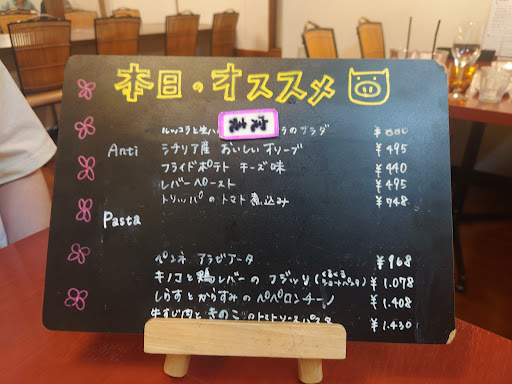 本日のオススメ
ルッコラと生ハ ラのサラダ ¥
Anti シチリア産 おいしいオリーブ ¥495
フライドポテト チーズ味 ¥440
レバーペースト ¥495
トリッパのトマト煮込み ¥748
Pasta
ペンネ アラビアータ ¥968
キノコと鶏レバーのフジッリ(くるくるショートパスタ) ¥1.078
しらすとからすみのペペロンチーノ ¥1.408
牛すじ肉ときのこのトマトソースパスタ ¥1.430